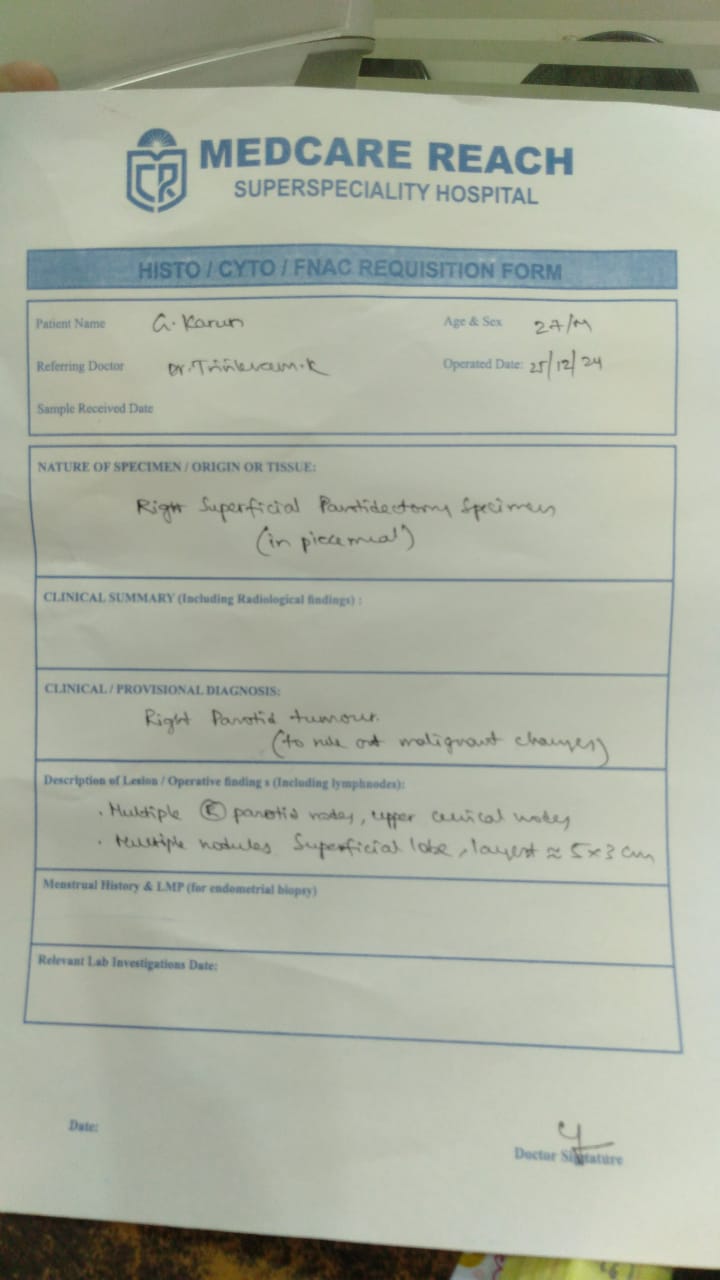 CR
MEDCARE REACH
SUPERSPECIALITY HOSPITAL
HISTO / CYTO / FNAC REQUISITION FORM
Patient Name G. Karun Age & Sex 27/M
Referring Doctor Dr. Operated Date: 25/12/24
Sample Received Date
NATURE OF SPECIMEN / ORIGIN OR TISSUE:
Right Superficial Parotidectomy Specimen
(in piecemeal)
CLINICAL SUMMARY (Including Radiological findings) :
CLINICAL / PROVISIONAL DIAGNOSIS:
Right Parotid tumour.
(to rule out malignant changes)
Description of Lesion / Operative finding s (Including lymphnodes):
• Multiple Ⓡ parotid nodes, upper cervical nodes
• Multiple nodules Superficial lobe, largest ≈ 5x3 cm
Menstrual History & LMP (for endometrial biopsy)
Relevant Lab Investigations Date:
Date:
Doctor Signature